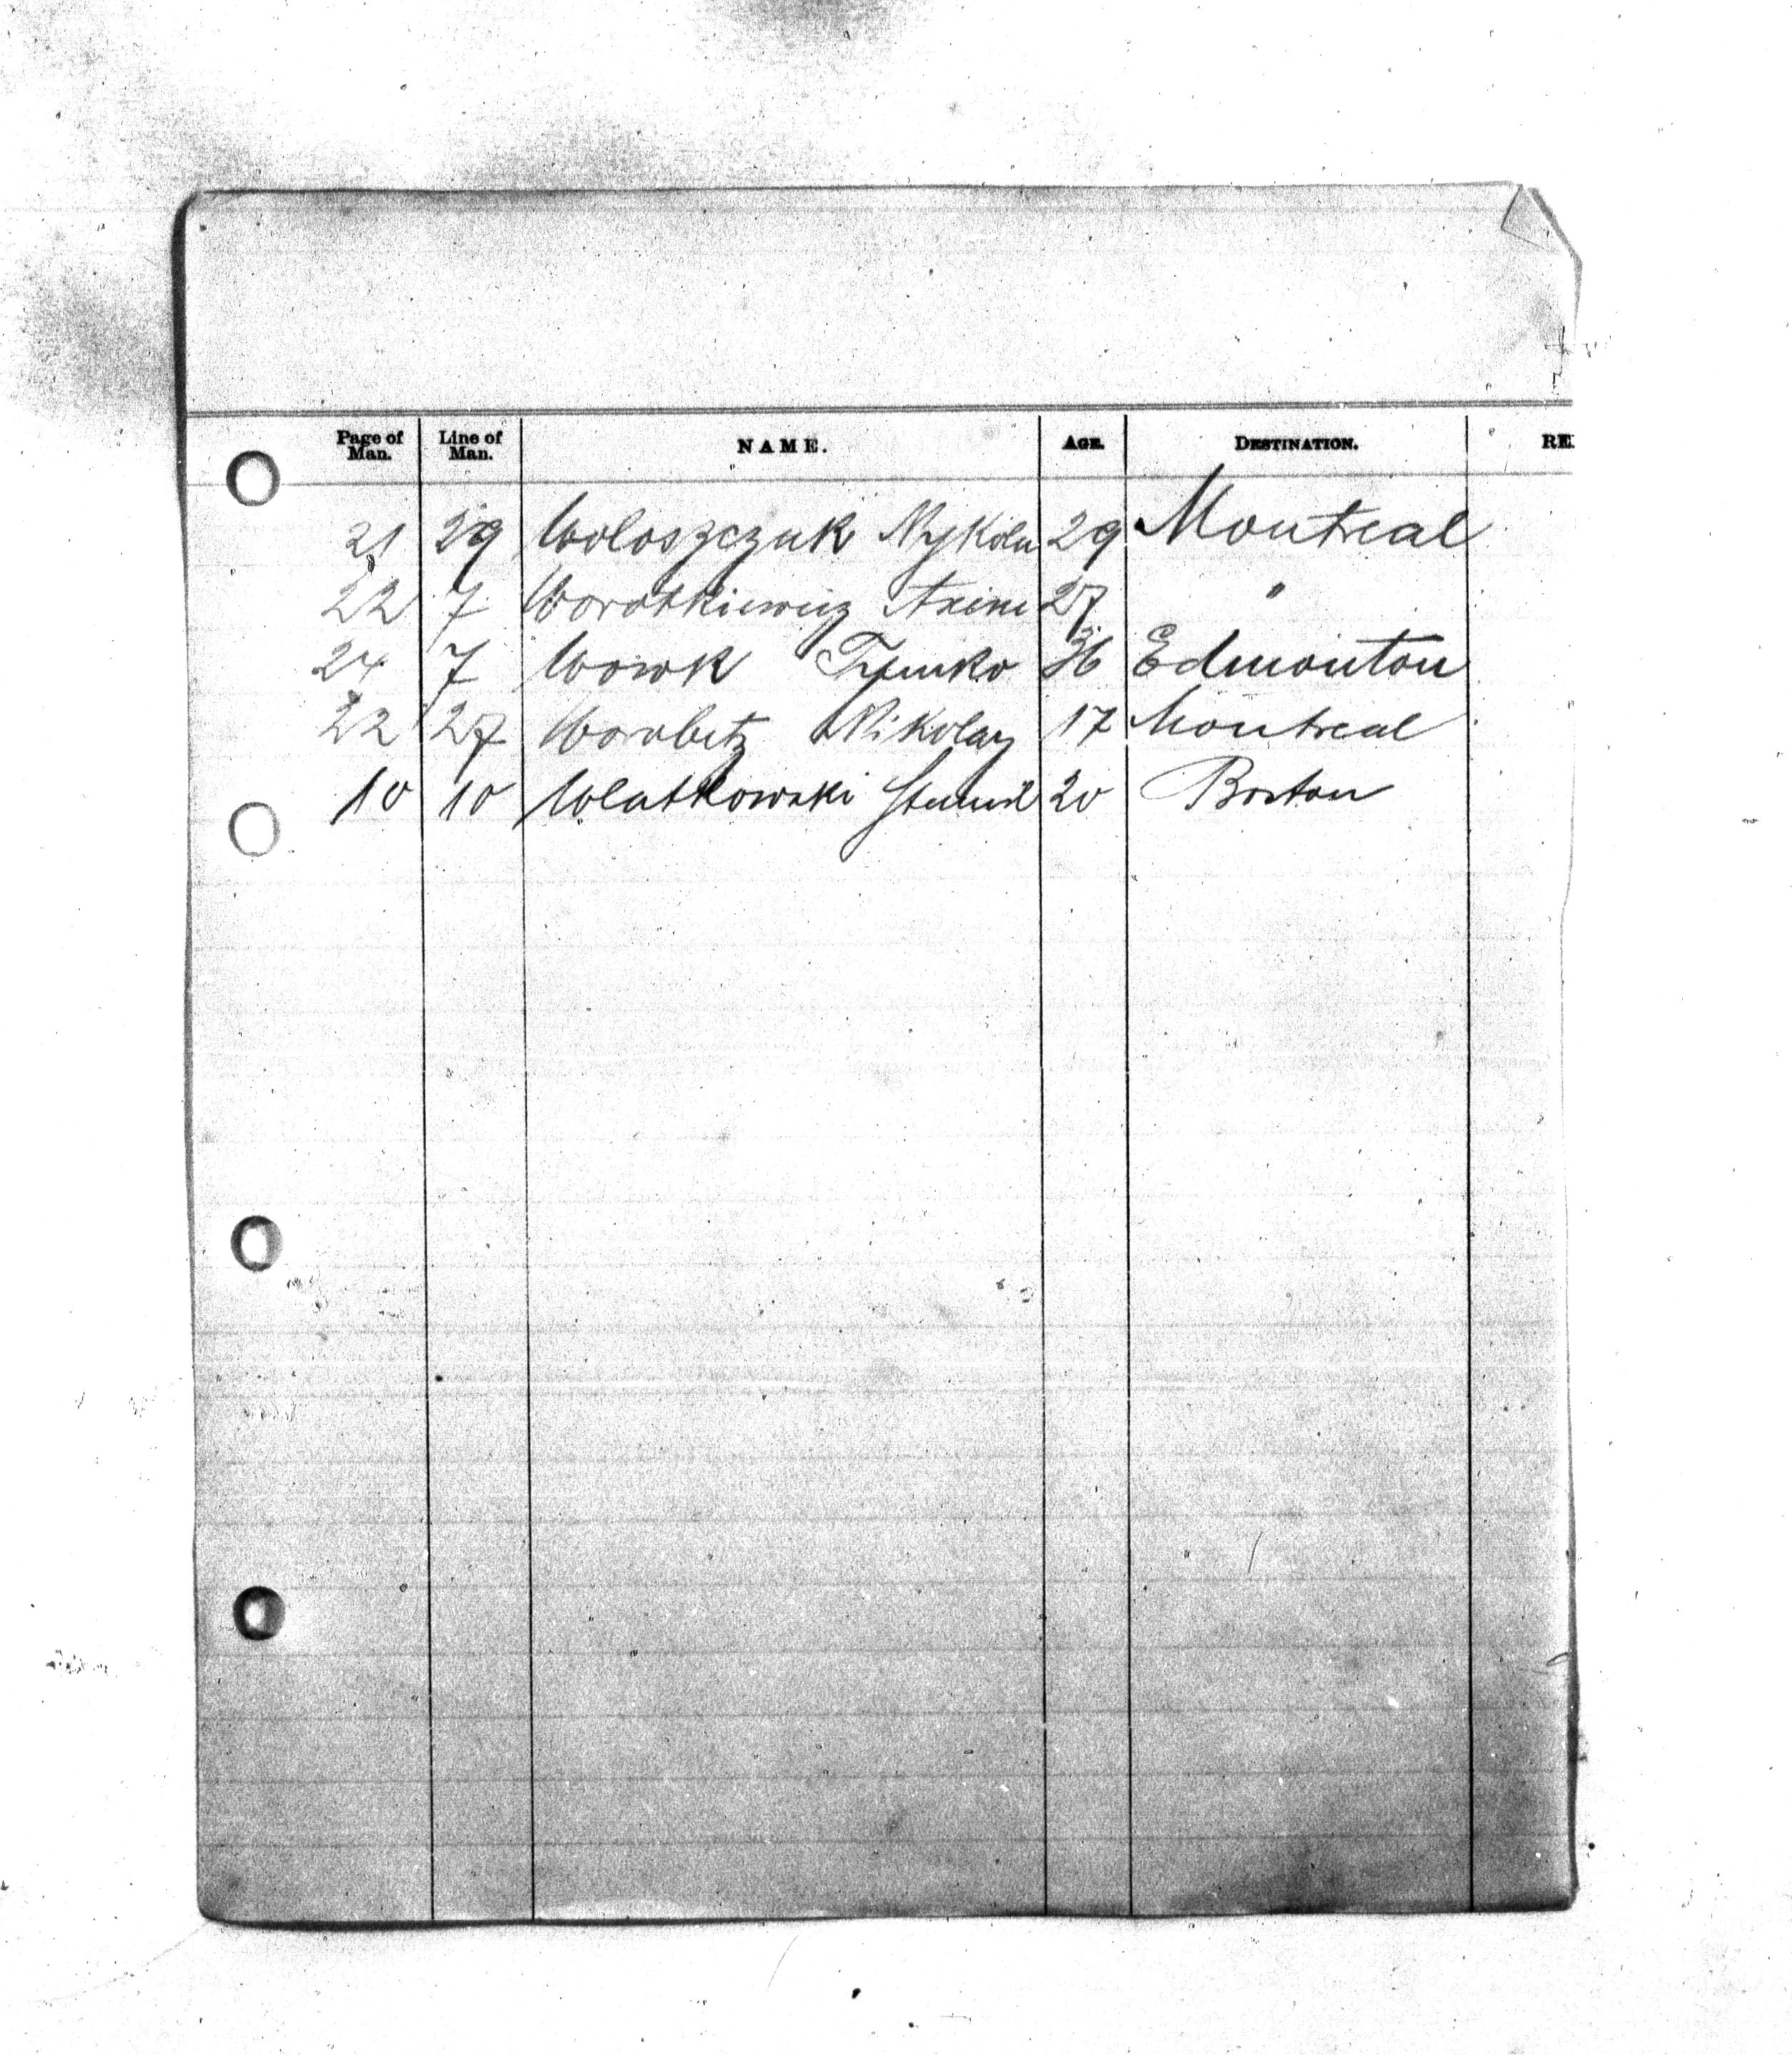 Page of Man. Line of Man. NAME. AGE. DESTINATION. RE
21 29 Woloszczuk Mykola 29 Montreal
22 7 Worotkiewicz 27 "
24 7 Wowk 36 Edmonton
22 27 Worobetz Nikolay 17 Montreal
10 10 Wlatkowski 20 Boston